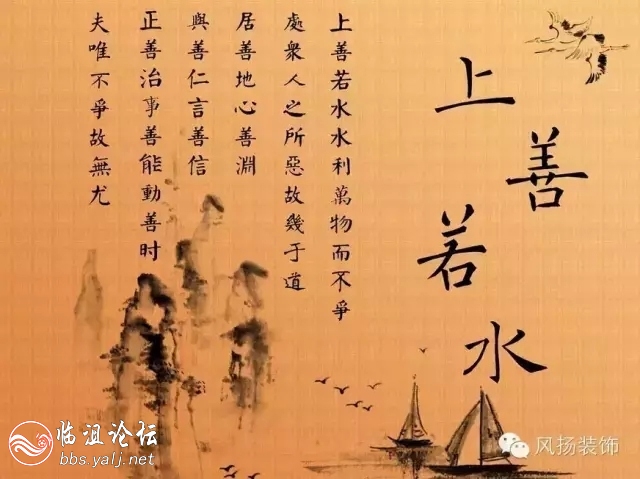 上善若水
上善若水水利萬物而不爭
處衆人之所惡故幾于道
居善地心善淵
與善仁言善信
正善治事善能動善时
夫唯不爭故無尤
临沮论坛
bbs.yalj.net
风扬装饰